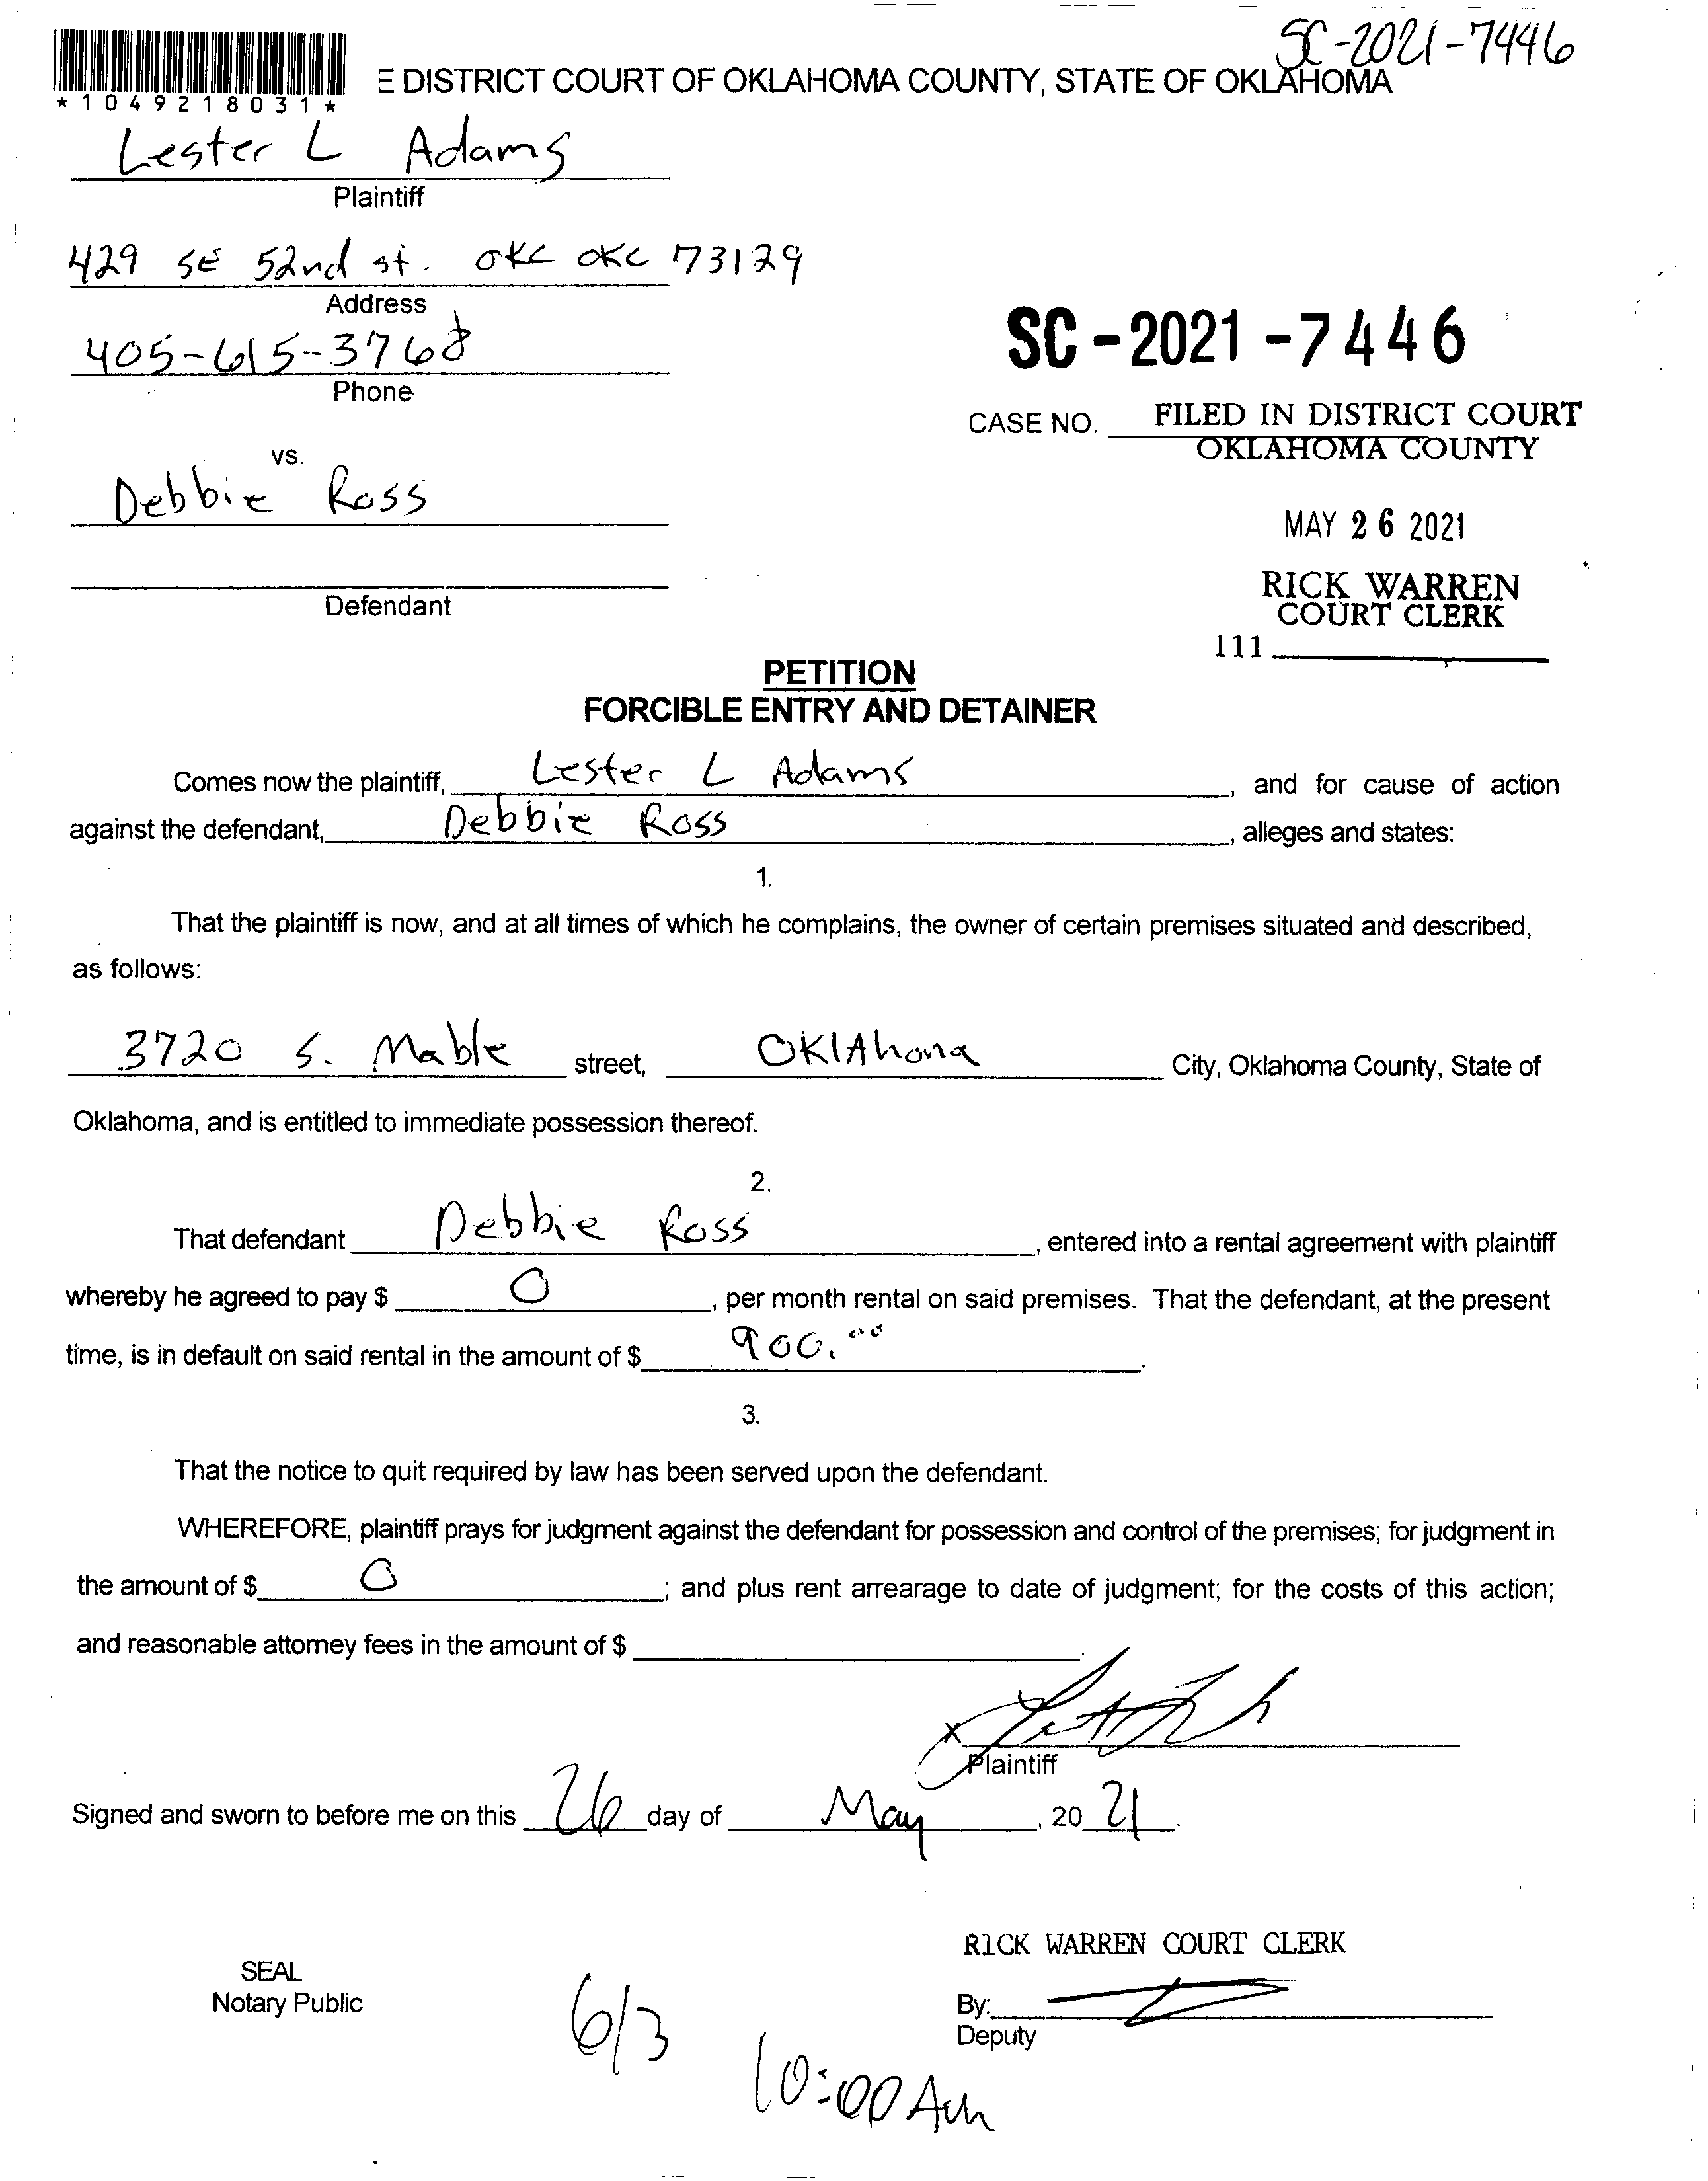 SC-2021-7446
E DISTRICT COURT OF OKLAHOMA COUNTY, STATE OF OKLAHOMA
*1049218031*
Lester L Adams
Plaintiff
429 SE 52nd st. OKC OKC 73129
Address
405-615-3768
Phone
SC-2021-7446
CASE NO. FILED IN DISTRICT COURT
OKLAHOMA COUNTY
vs.
Debbie Ross
MAY 26 2021
Defendant
RICK WARREN
COURT CLERK
111
PETITION
FORCIBLE ENTRY AND DETAINER
Comes now the plaintiff, Lester L Adams, and for cause of action
against the defendant, Debbie Ross, alleges and states:
1.
That the plaintiff is now, and at all times of which he complains, the owner of certain premises situated and described,
as follows:
3720 S. Mable street, OKlAhona City, Oklahoma County, State of
Oklahoma, and is entitled to immediate possession thereof.
2.
That defendant Debbie Ross, entered into a rental agreement with plaintiff
whereby he agreed to pay $ 0, per month rental on said premises. That the defendant, at the present
time, is in default on said rental in the amount of $ 900.00.
3.
That the notice to quit required by law has been served upon the defendant.
WHEREFORE, plaintiff prays for judgment against the defendant for possession and control of the premises; for judgment in
the amount of $ 0; and plus rent arrearage to date of judgment; for the costs of this action;
and reasonable attorney fees in the amount of $
X
Plaintiff
Signed and sworn to before me on this 26 day of May, 20 21.
RICK WARREN COURT CLERK
SEAL
Notary Public
By:
Deputy
6/3
10:00 Am